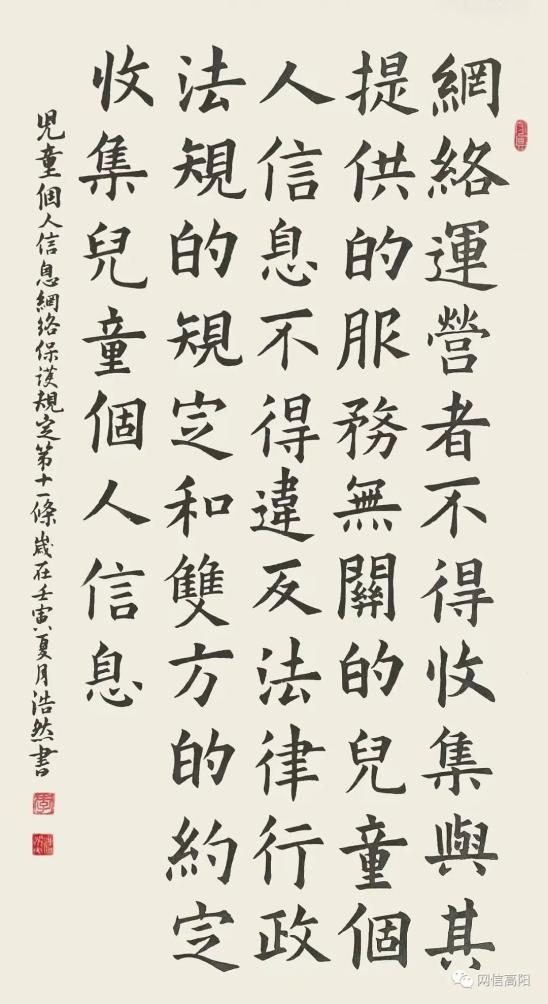 網絡運營者不得收集與其
提供的服務無關的兒童個
人信息不得違反法律行政
法規的規定和雙方的約定
收集兒童個人信息
児童個人信息網絡保護規定第十一條歲在壬寅夏月浩然書
网信高阳